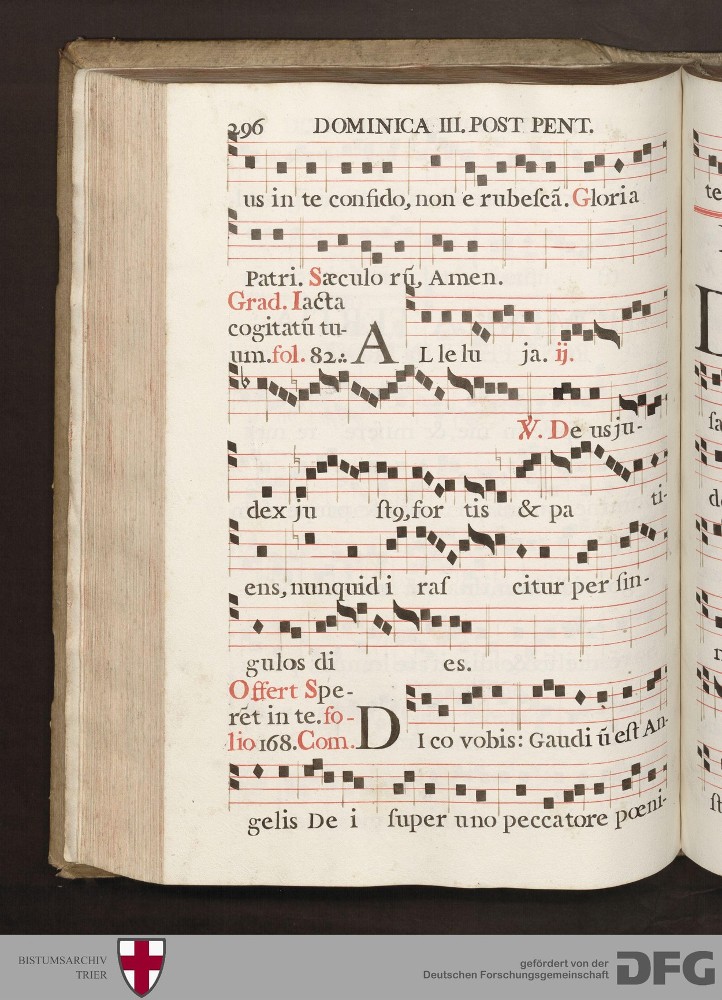 296 DOMINICA III. POST PENT.
us in te confido, non e rubeſcã. Gloria
Patri. Sæculo rũ, Amen.
Grad. Iacta
cogitatũ tu-
um. fol. 82.:. A L le lu ja. ij.
℣. De us ju-
dex ju ſtꝰ, for tis & pa ti-
ens, nunquid i raſ citur per ſin-
gulos di es.
Offert Spe-
rẽt in te. fo-
lio 168. Com. D I co vobis: Gaudi ũ eſt An-
gelis De i ſuper uno peccatore pœni-
BISTUMSARCHIV
TRIER
gefördert von der
Deutschen Forschungsgemeinschaft
DFG